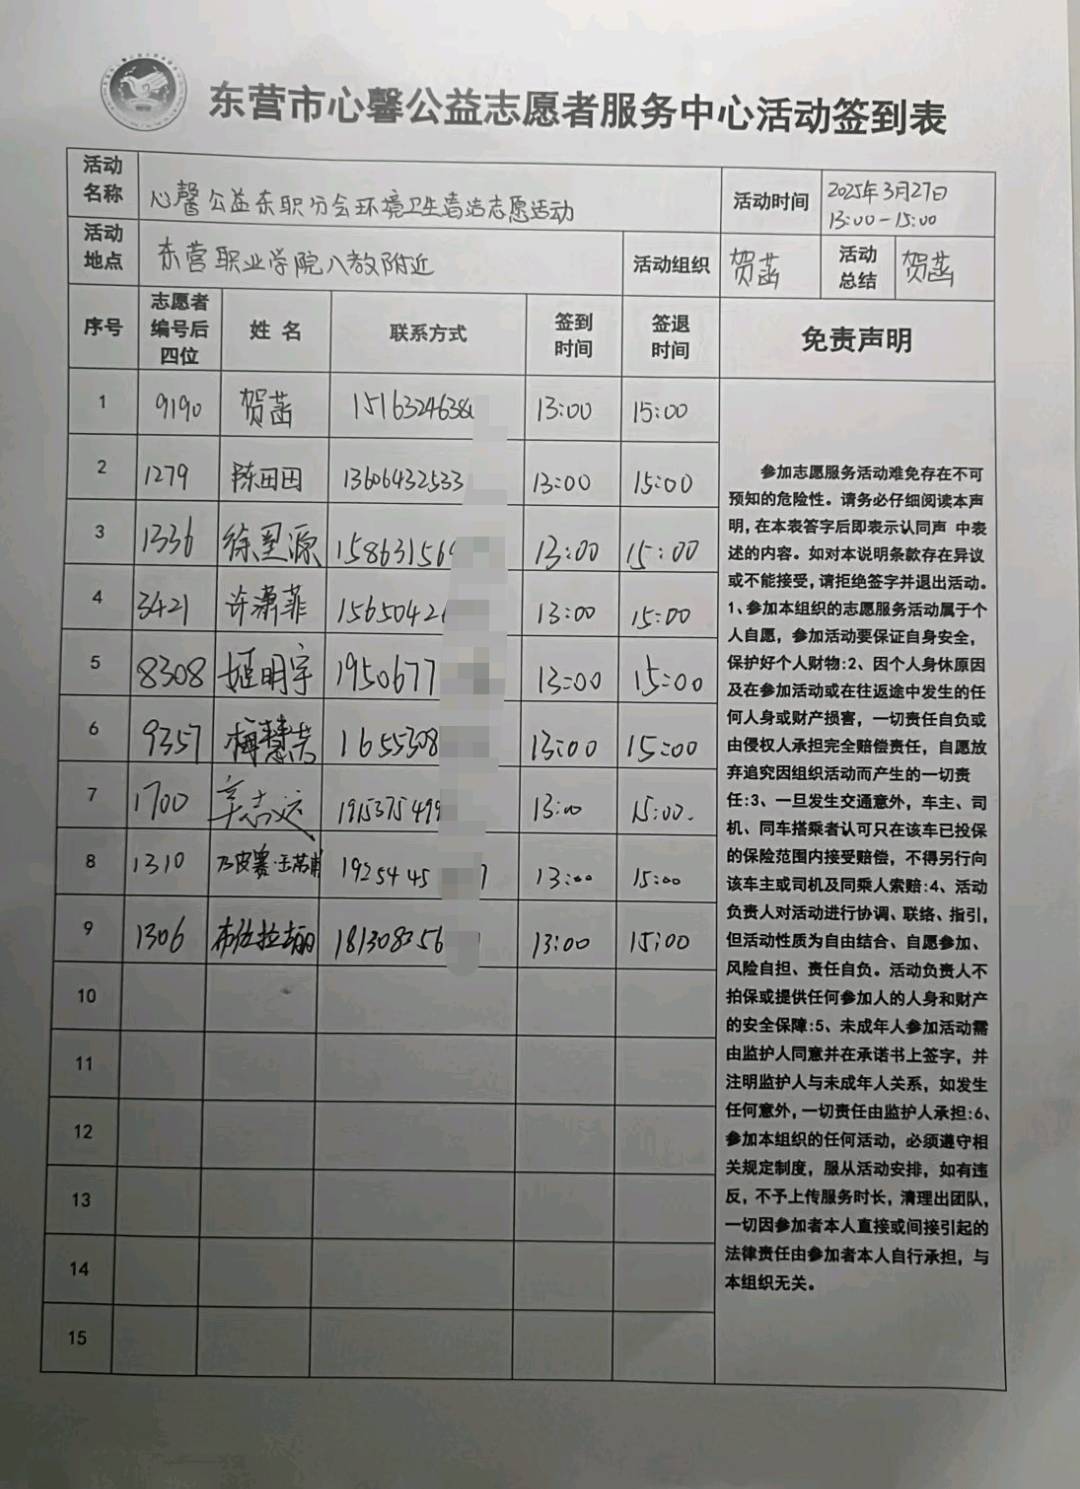 东营市心馨公益志愿者服务中心活动签到表
活动名称 心馨公益东职分会环境卫生清洁志愿活动 活动时间 2025年3月27日 13:00-15:00
活动地点 东营职业学院八教附近 活动组织 贺茜 活动总结 贺茜
序号 志愿者编号后四位 姓名 联系方式 签到时间 签退时间 免责声明
1 9190 贺茜 1516324638 13:00 15:00
2 1279 陈田田 13606432533 13:00 15:00
3 1336 徐 源 15863156 13:00 15:00
4 3421 许潇菲 1565042 13:00 15:00
5 8308 姬明宇 1950677 13:00 15:00
6 9357 梅慧 1655308 13:00 15:00
7 1700 辛志远 191537549 13:00 15:00.
8 1310 乃皮赛· 1925445 7 13:00 15:00
9 1306 布 拉 181308356 13:00 15:00
10
11
12
13
14
15
参加志愿服务活动难免存在不可
预知的危险性。请务必仔细阅读本声
明,在本表答字后即表示认同声 中表
述的内容。如对本说明条款存在异议
或不能接受,请拒绝签字并退出活动。
1、参加本组织的志愿服务活动属于个
人自愿，参加活动要保证自身安全，
保护好个人财物:2、因个人身休原因
及在参加活动或在往返途中发生的任
何人身或财产损害，一切责任自负或
由侵权人承担完全赔偿责任，自愿放
弃追究因组织活动而产生的一切责
任:3、一旦发生交通意外，车主、司
机、同车搭乘者认可只在该车已投保
的保险范围内接受赔偿，不得另行向
该车主或司机及同乘人索赔:4、活动
负责人对活动进行协调、联络、指引，
但活动性质为自由结合、自愿参加、
风险自担、责任自负。活动负责人不
拍保或提供任何参加人的人身和财产
的安全保障:5、未成年人参加活动需
由监护人同意并在承诺书上签字，并
注明监护人与未成年人关系，如发生
任何意外,一切责任由监护人承担:6、
参加本组织的任何活动，必须遵守相
关规定制度，服从活动安排，如有违
反，不予上传服务时长，清理出团队，
一切因参加者本人直接或间接引起的
法律责任由参加者本人自行承担，与
本组织无关。